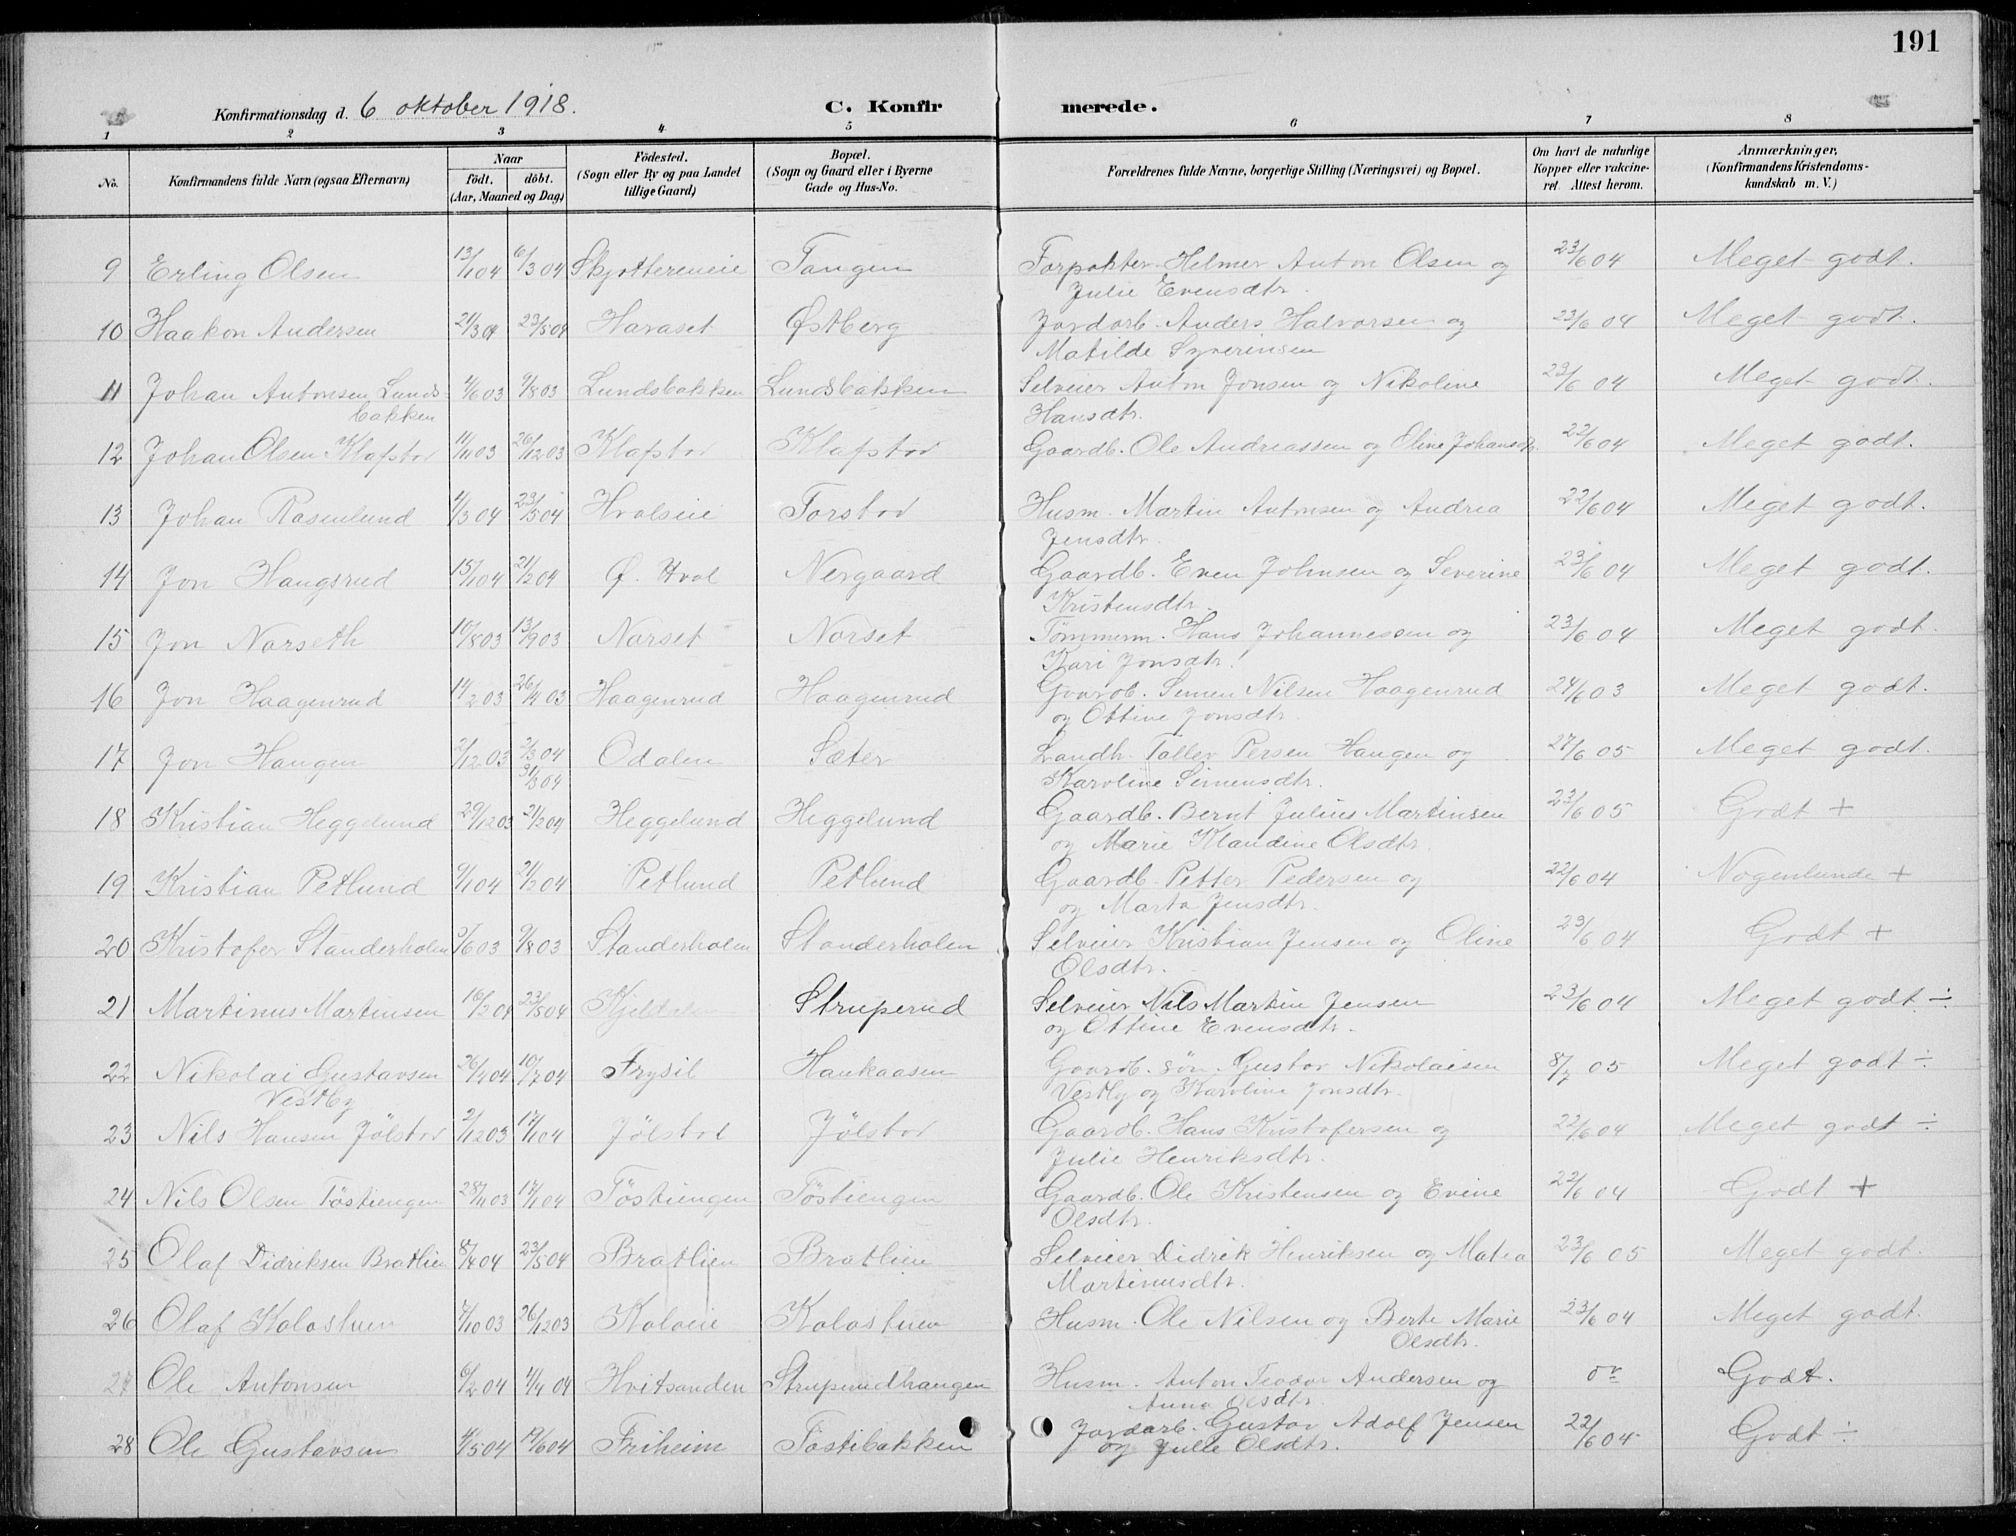 191
Konfirmationsdag d. 6 oktober 1918. C. Konfirmerede.
1 2 3 4 5 6 7 8
No. Konfirmandens fulde Navn (ogsaa Efternavn) Naar födt. döbt. (Aar, Maaned og Dag) Födested. (Sogn eller By og paa Landet tillige Gaard) Bopæl. (Sogn og Gaard eller i Byerne Gade og Hus-No. Forældrenes fulde Navne, borgerlige Stilling (Næringsvei) og Bopæl. Om havt de naturlige Kopper eller vakcineret. Attest herom. Anmærkninger, (Konfirmandens Kristendomskundskab m. V.)
9 Erling Olsen 13/1 04 6/3 04 Skjøttereneie Tangen Forpakter Helmer Anton Olsen og 23/6 04 Meget godt.
Julie Evensdtr.
10 Haakon Andersen 21/3 04 23/5 04 Haraset Østberg Jordarb. Anders Halvorsen og 23/6 04 Meget godt.
Matilde Syverinsen
11 Johan Antonsen Lunds- 9/8 03 Lundsbakken Lundsbakken Selveier Anton Jonsen og Nikoline 23/6 04 Meget godt.
bakken Hansdtr.
12 Johan Olsen Klafstad 11/11 03 26/12 03 Klafstad Klafstad Gaardb. Ole Andreassen og Eline Johansdtr. 22/6 04 Meget godt.
13 Johan Rosenlund 4/3 04 23/5 04 Hvalseie Torstad Husm. Martin Antonsen og Andrea 22/6 04 Meget godt.
Jensdtr.
14 Jon Haugsrud 15/1 04 21/2 04 Ø. Hval Nergaard Gaardb. Even Johnsen og Severine 23/6 04 Meget godt.
Kristensdtr.
15 Jon Narseth 10/8 03 13/9 03 Narset Norset Tømmerm. Hans Johannessen og 23/6 04 Meget godt.
Kari Jonsdtr.
16 Jon Haagenrud 14/2 03 26/4 03 Haagenrud Haagenrud Gaardb. Simen Nilsen Haagenrud 24/6 03 Meget godt.
og Ottine Jonsdtr.
17 Jon Haugen 2/12 03 2/3 04 Odalen Sæter Landh. Tallev Persen Haugen og 27/6 05 Meget godt.
31/3 04 Karoline Simensdtr.
18 Kristian Heggelund 29/12 03 21/2 04 Heggelund Heggelund Gaardb. Bernt Julius Martinsen 23/6 05 Godt +
og Marie Klaudine Olsdtr.
19 Kristian Petlund 9/1 04 21/2 04 Petlund Petlund Gaardb. Petter Pedersen og 22/6 04 Nogenlunde +
og Marta Jensdtr.
20 Kristofer Standerholen 9/6 03 9/8 03 Standerholen Standerholen Selveier Kristian Jensen og Oline 23/6 04 Godt +
Olsdtr.
21 Martinus Martinsen 16/2 04 23/5 04 Struperud Selveier Nils Martin Jensen 23/6 04 Meget godt ÷
og Ottine Evensdtr.
22 Nikolai Gustavsen 26/4 04 10/7 04 Trysil Haukaasen Gaardb. søn Gustav Nikolaisen 8/7 05 Meget godt ÷
Vestby Vestby og Karoline Jonsdtr.
23 Nils Hansen Jølstad 2/12 03 17/1 04 Jølstad Jølstad Gaardb. Hans Kristofersen og 22/6 04 Meget godt ÷
Julie Henriksdtr.
24 Nils Olsen Töstiengen 28/11 03 17/1 04 Töstiengen Töstiengen Gaardb. Ole Kristensen og Evine 22/6 04 Godt +
Olsdtr.
25 Olaf Didriksen Bratlien 8/4 04 23/5 04 Bratlien Bratlien Selveier Didrik Henriksen og Matea 23/6 05 Meget godt.
Martinusdtr.
26 Olaf Kolostuen 7/10 03 26/12 03 Koloeie Kolostuen Husm. Ole Nilsen og Berte Marie 23/6 04 Meget godt.
Olsdtr.
27 Ole Antonsen 6/2 04 4/4 04 Hvitsanden Struperudhaugen Husm. Anton Teodor Andersen og Godt.
Anna Olsdtr.
28 Ole Gustavsen 4/5 04 19/6 04 Friheim Tøstibakken Jordarb. Gustav Adolf Jensen 22/6 04 Godt ÷
og Julie Olsdtr.